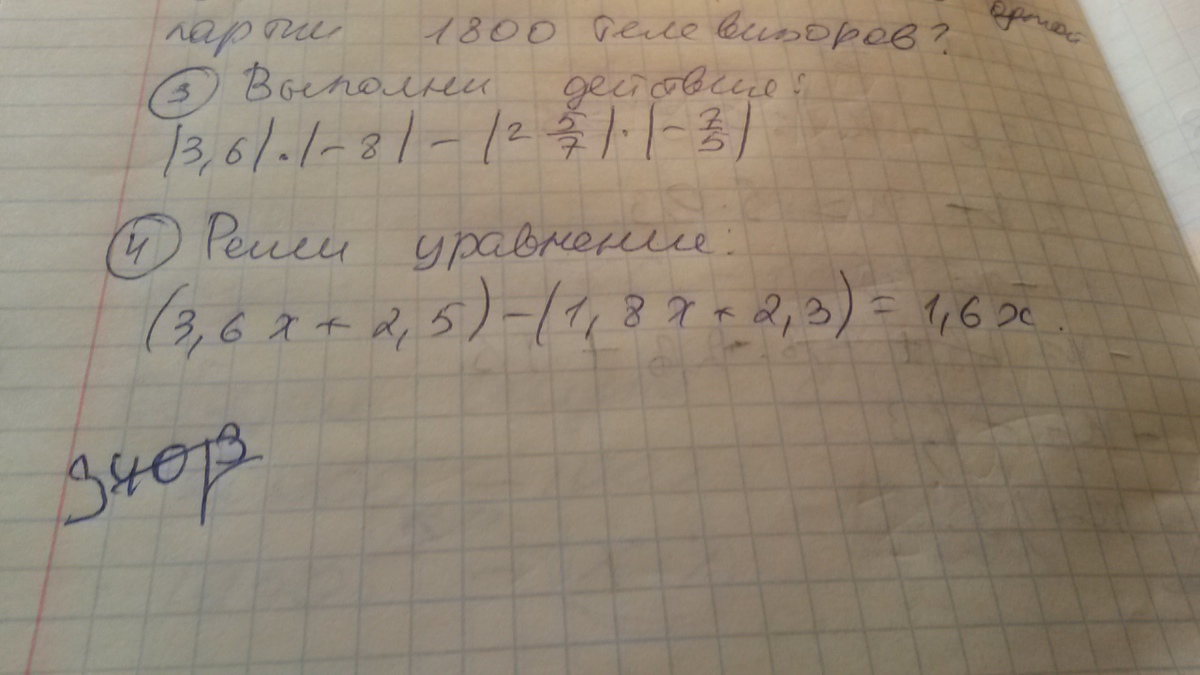 партии 1800 телевизоров?
③ Выполни действие:
|3,6|·|-8|-|2 5/7|·|-7/5|
④ Реши уравнение:
(3,6x+2,5)-(1,8x+2,3)=1,6x.